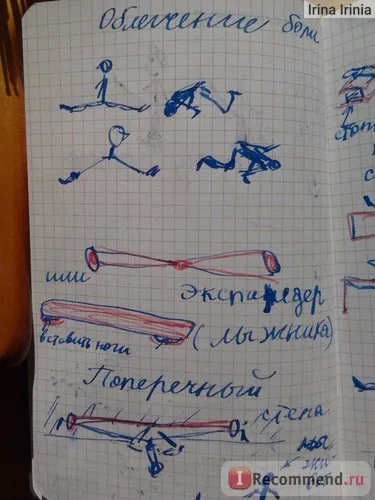 Irina Irinia
Облегчение боли
стоп
с
или
Экспандер
вставить ноги
(лыжника)
Поперечный
стена
Recommend.ru